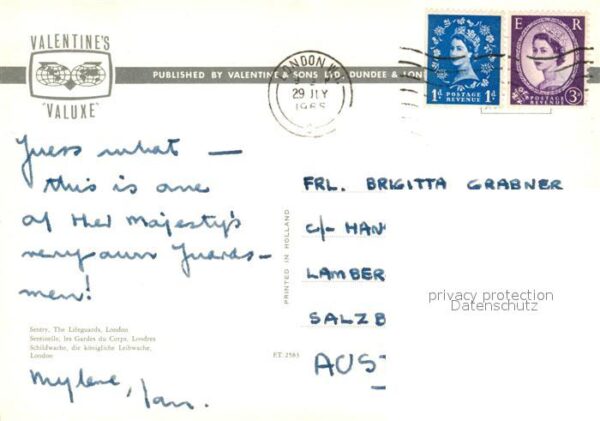 VALENTINE'S
"VALUXE"
PUBLISHED BY VALENTINE & SONS LTD, DUNDEE & LON
LONDON
29 JLY
1965
1D POSTAGE REVENUE 1D
E R
POSTAGE REVENUE 3D
Guess what —
this is one
of Her Majesty's
very own Guards-
men!
Sentry, The Lifeguards, London
Sentinelle, les Gardes du Corps, Londres
Schildwache, die königliche Leibwache,
London
ET 2583
Mylene, Ian.
PRINTED IN HOLLAND
FRL. BRIGITTA GRABNER
C/- HAN
LAMBER
SALZB
AUST
privacy protection
Datenschutz